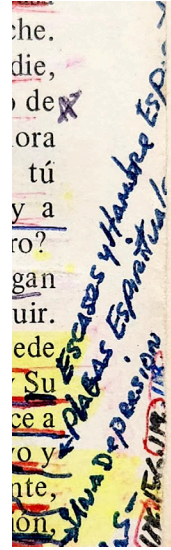 che.
die,
o de
ora
tú
y a
ro?
gan
uir.
ede
Su
ce a
vo y
nte,
ión,
Escases y Hambre Esp
Plagas Espiritual
Una Depresion
as-